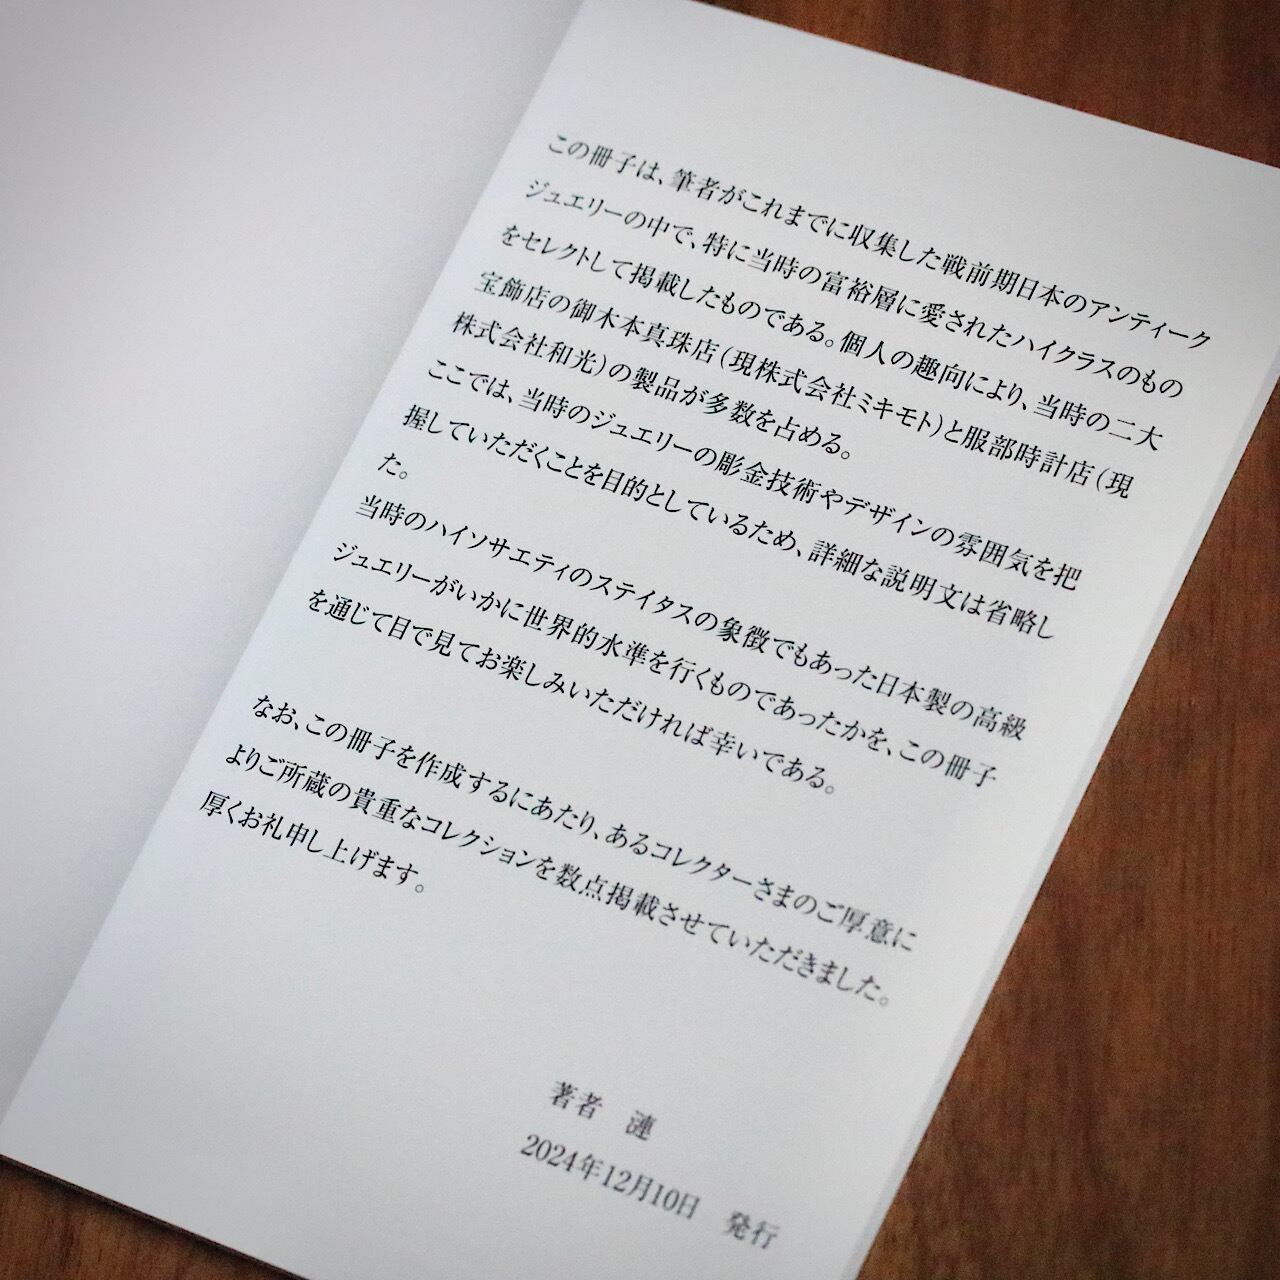 この冊子は、筆者がこれまでに収集した戦前期日本のアンティーク
ジュエリーの中で、特に当時の富裕層に愛されたハイクラスのもの
をセレクトして掲載したものである。個人の趣向により、当時の二大
宝飾店の御木本真珠店（現株式会社ミキモト）と服部時計店（現
株式会社和光）の製品が多数を占める。
ここでは、当時のジュエリーの彫金技術やデザインの雰囲気を把
握していただくことを目的としているため、詳細な説明文は省略し
た。
当時のハイソサエティのステイタスの象徴でもあった日本製の高級
ジュエリーがいかに世界的水準を行くものであったかを、この冊子
を通じて目で見てお楽しみいただければ幸いである。
なお、この冊子を作成するにあたり、あるコレクターさまのご厚意に
よりご所蔵の貴重なコレクションを数点掲載させていただきました。
厚くお礼申し上げます。
著者　漣
2024年12月10日　発行